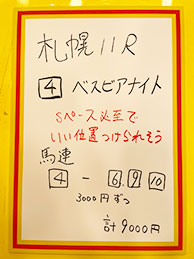 札幌11R
4 ベスビアナイト
Sペース必至で
いい位置つけられそう
馬連
4 - 6,9,10
3000円ずつ
計9000円